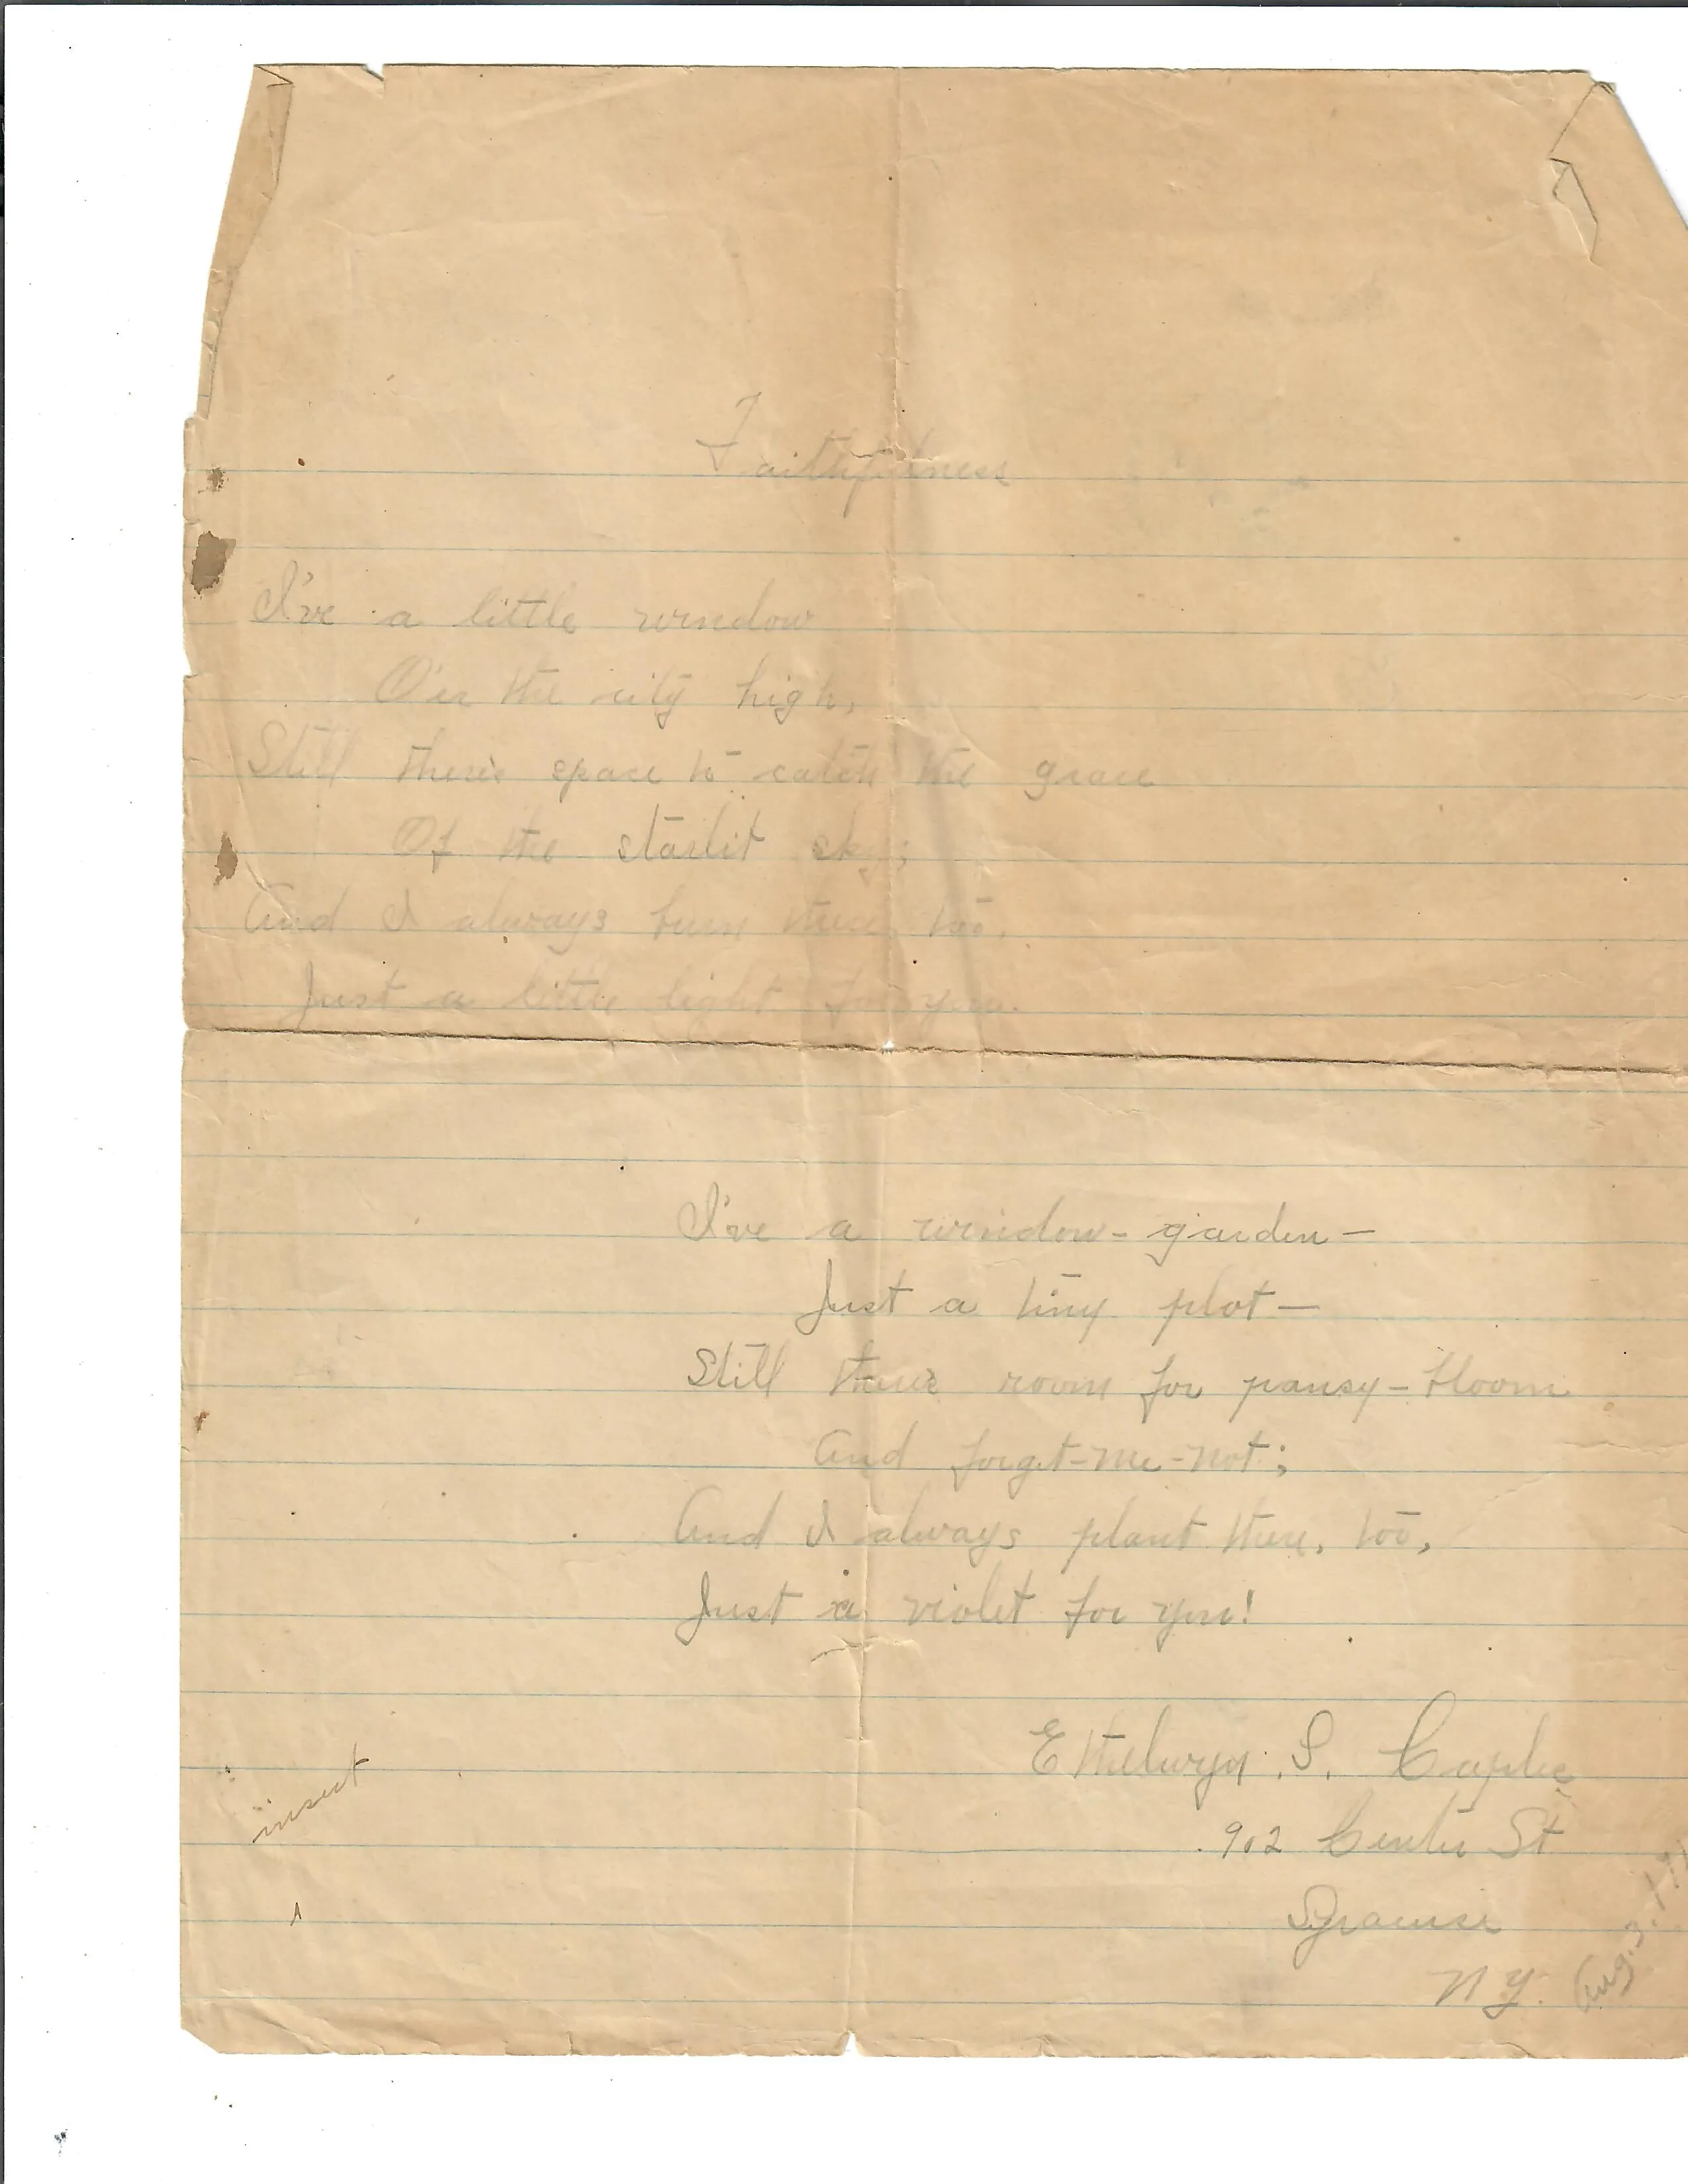 Faithfulness
I've a little window
O'er the city high,
Still there's space to catch the grace
Of the starlit sky;
And I always burn there, too,
Just a little light for you.
I've a window-garden—
Just a tiny plot—
Still there's room for pansy-bloom
And forget-me-not;
And I always plant there, too,
Just a violet for you!
Ethelwyn S.
902 Center St
Syracuse
N.Y.
Aug. 3.
insert